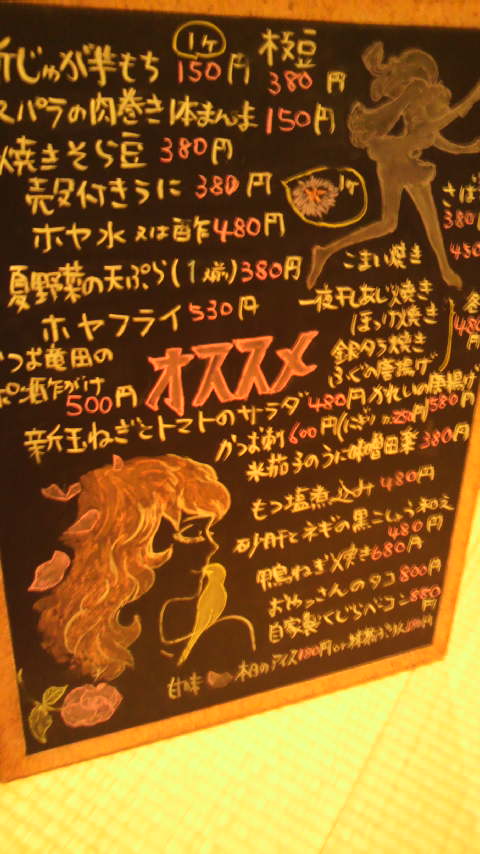 じゃが芋もち 1ケ 150円
枝豆 380円
スパラの肉巻き1本まんま150円
焼きそら豆 380円
殻付きうに 380円
1ケ
さば
380
450
ホヤ水又は酢480円
こまい焼き
夏野菜の天ぷら(1揃)380円
一夜干しあじ焼き
ほっけ焼き
480円
銀タラ焼き
ふぐの唐揚げ
ホヤフライ 530円
オススメ
つお竜田の
ポン酢がけ
500円
かれいの唐揚げ
580円
新玉ねぎとトマトのサラダ480円
かつお刺600円(にぎり 250円)
米茄子のうに味噌田楽380円
もつ塩煮込み 480円
砂肝とネギの黒こしょう和え
480円
鴨ねぎ焼き680円
おやっさんのタコ 800円
自家製くじらベーコン880円
甘味 本日のアイス180円or